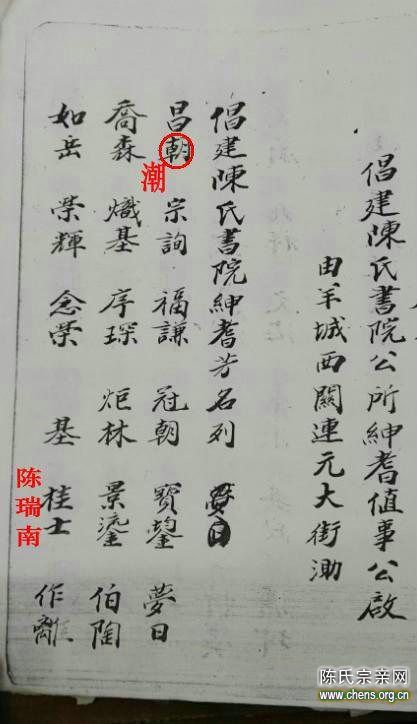 倡建陳氏書院公所紳耆值事公啟
由羊城西關連元大街泐
倡建陳氏書院紳耆芳名列
昌朝 宗詢 福謙 冠朝 寶鋆 夢日
潮
喬森 熾基 序琛 炬林 景鎏 伯陶
如岳 榮輝 念榮 基 桂士 作離
陈瑞南
陈氏宗亲网
www.chens.org.cn